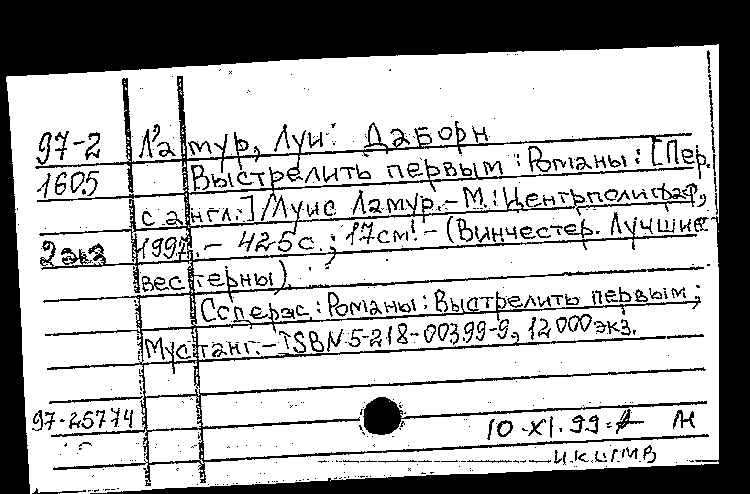 97-2 Л'амур, Луи Даборн
1605 Выстрелить первым : Романы : [Пер.
с англ.] / Луис Ламур. - М. : Центрполиграф,
2 экз 1997. - 425 с. ; 17 см. - (Винчестер. Лучшие
вестерны)
Содерж : Романы : Выстрелить первым ;
Мустанг. - ISBN 5-218-00399-9, 12000 экз.
97-25774
10.XI.99